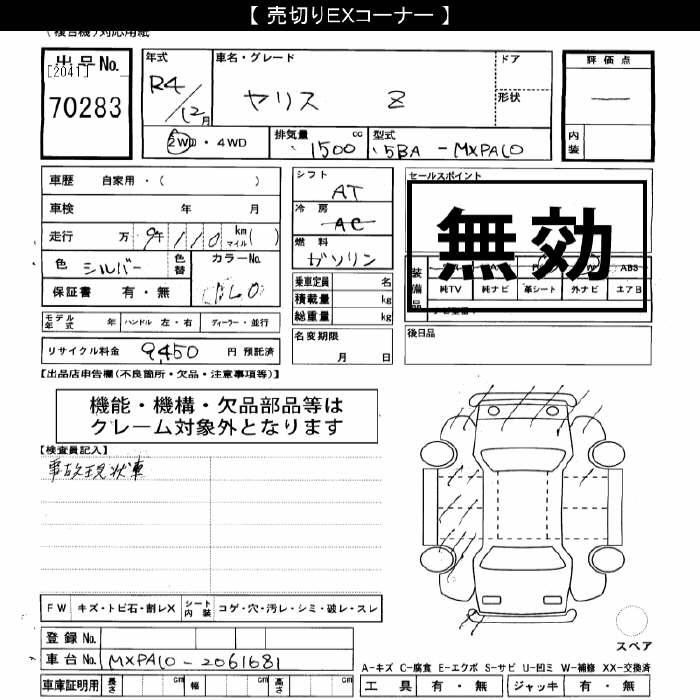 【 売切りEXコーナー 】
(複合機)対応用紙
出品No.
[2041]
70283
年式
R4/12月
車名・グレード
ヤリス Z
ドア
形状
評価点
—
内装
2WD・4WD
排気量 1500 cc
型式 5BA-MXPA10
車歴 自家用・( )
車検 年 月
走行 万 9千110 km マイル( )
色 シルバー
色替
カラーNo.
保証書 有・無
モデル年式 年 ハンドル 左・右 ディーラー・並行
リサイクル料金 9,450 円 預託済
シフト AT
冷房 AC
燃料 ガソリン
乗車定員 名
積載量 kg
総重量 kg
名変期限
月 日
セールスポイント
無効
装備品
ABS
純TV 純ナビ 革シート 外ナビ エアB
後日品
【出品店申告欄(不良箇所・欠品・注意事項等)】
機能・機構・欠品部品等は
クレーム対象外となります
【検査員記入】
事故現状車
FW キズ・トビ石・割レX シート内装 コゲ・穴・汚レ・シミ・破レ・スレ
登録No.
車台No. MXPA10-2061681
車庫証明用 長さ cm 幅 cm 高さ cm
スペア
A-キズ C-腐食 E-エクボ S-サビ U-凹ミ W-補修 XX-交換済
工具 有・無 ジャッキ 有・無